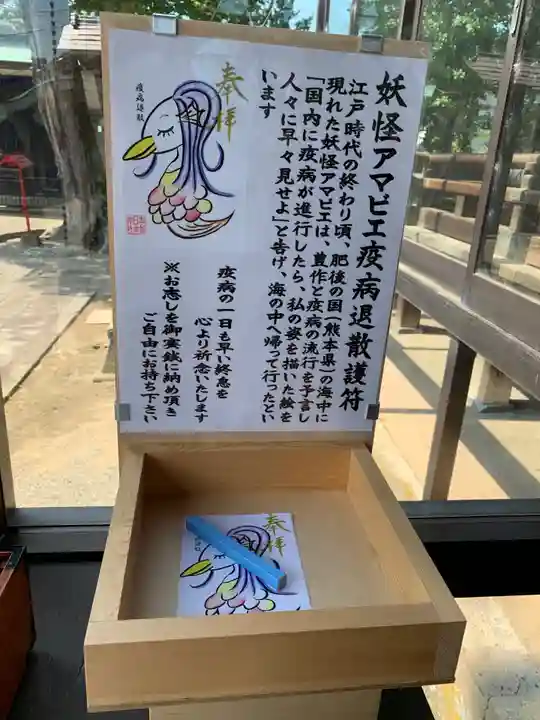 妖怪アマビエ疫病退散護符
江戸時代の終わり頃、肥後の国(熊本県)の海中に
現れた妖怪アマビエは、豊作と疫病の流行を予言し
「国内に疫病が進行したら、私の姿を描いた絵を
人々に早々見せよ」と告げ、海の中へ帰って行ったとい
います
疫病の一日も早い終息を
心より祈念いたします
※お志しを御賽銭に納め頂き
ご自由にお持ち下さい
奉拝
疫病退散
奉拝